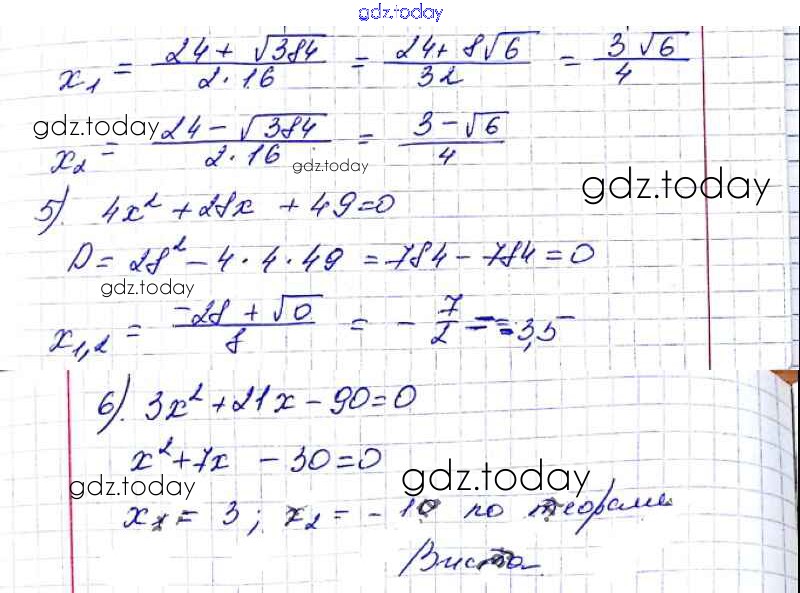 gdz.today
x₁ = (24 + √384)/(2·16) = (24 + 8√6)/32 = (3 √6)/4
gdz.today
x₂ = (24 − √384)/(2·16) = (3 − √6)/4
gdz.today
gdz.today
5). 4x² + 28x + 49 = 0
D = 28² − 4·4·49 = 784 − 784 = 0
gdz.today
x₁,₂ = (−28 + √0)/8 = − 7/2 = −3,5
6). 3x² + 21x − 90 = 0
x² + 7x − 30 = 0
gdz.today
gdz.today
x₁ = 3; x₂ = − 10 по теореме
Виета